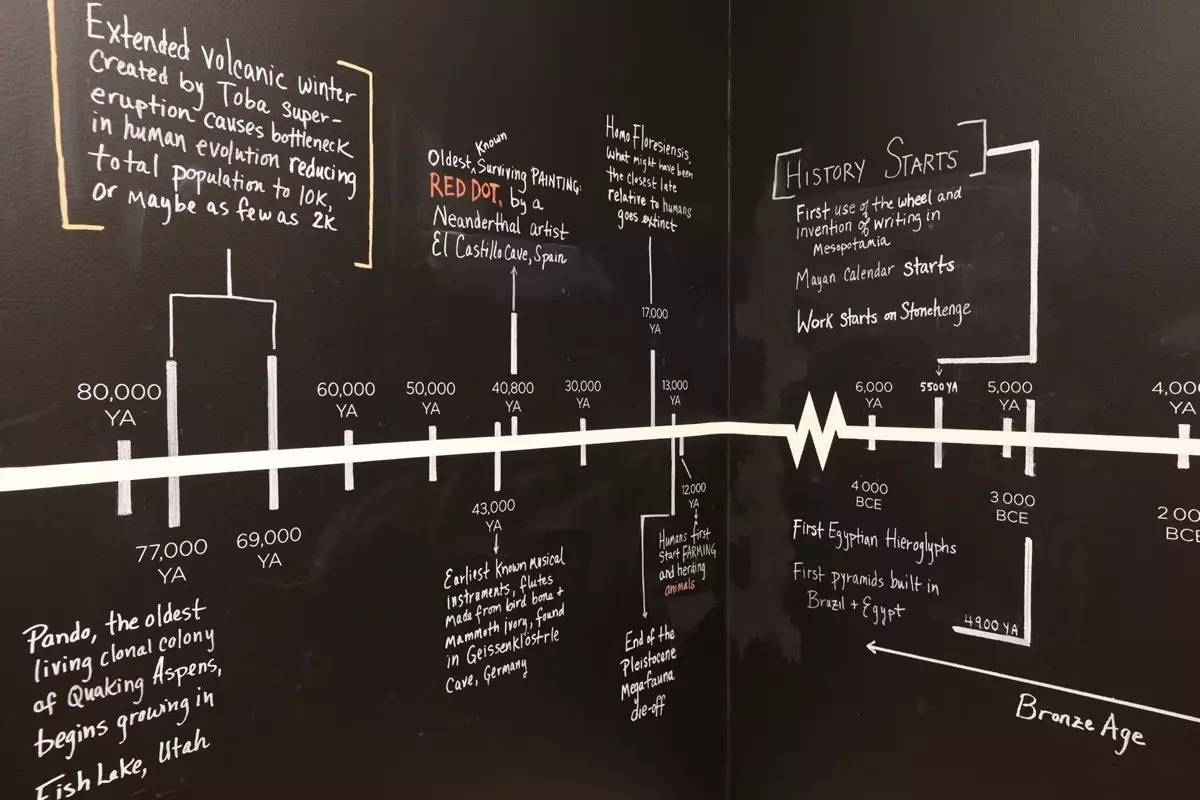 Extended volcanic winter
Created by Toba super-
eruption causes bottleneck
in human evolution reducing
total population to 10K,
or maybe as few as 2K
Known
Oldest ^ Surviving PAINTING:
RED DOT, by a
Neanderthal artist
El Castillo Cave, Spain
Homo Floresiensis,
what might have been
the closest late
relative to humans
goes extinct
HISTORY STARTS
First use of the wheel and
invention of writing in
Mesopotamia
Mayan Calendar Starts
Work Starts on Stonehenge
17,000
YA
80,000
YA
60,000
YA
50,000
YA
40,800
YA
30,000
YA
13,000
YA
6,000
YA
5500 YA
5,000
YA
4,00
YA
77,000
YA
69,000
YA
43,000
YA
12,000
YA
4 000
BCE
3 000
BCE
2 00
BCE
Pando, the oldest
living clonal colony
of Quaking Aspens,
begins growing in
Fish Lake, Utah
Earliest Known Musical
instruments, flutes
Made from bird bone +
Mammoth ivory, found
in Geissenklöstrle
Cave, Germany
Humans first
Start FARMING
and herding
animals
End of the
Pleistocene
Megafauna
die-off
First Egyptian Hieroglyphs
First pyramids built in
Brazil + Egypt
4900 YA
Bronze Age